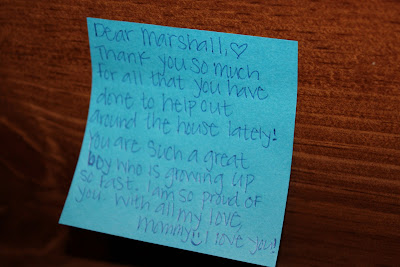 Dear Marshall, ♡
Thank you so much
for all that you have
done to help out
around the house lately!
You are such a great
boy who is growing up
so fast. I am so proud of
you. With all my love,
mommy ☺ I love you!